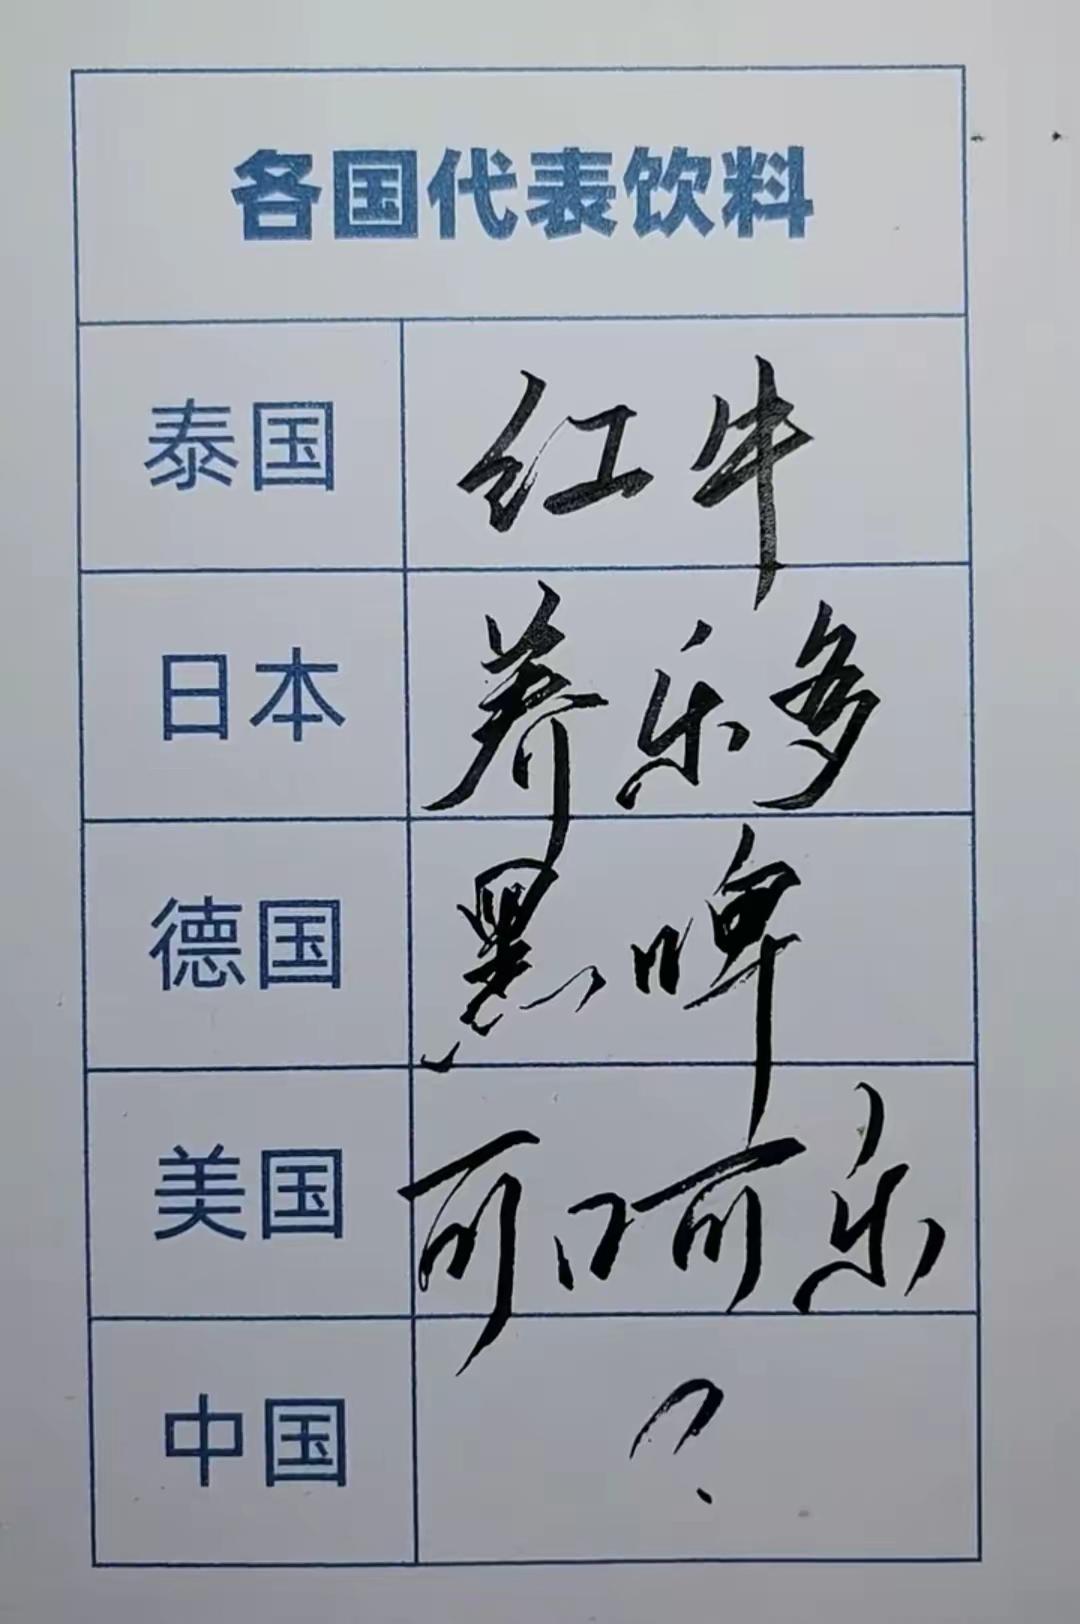 各国代表饮料
泰国 红牛
日本 养乐多
德国 黑啤
美国 可口可乐
中国 ?